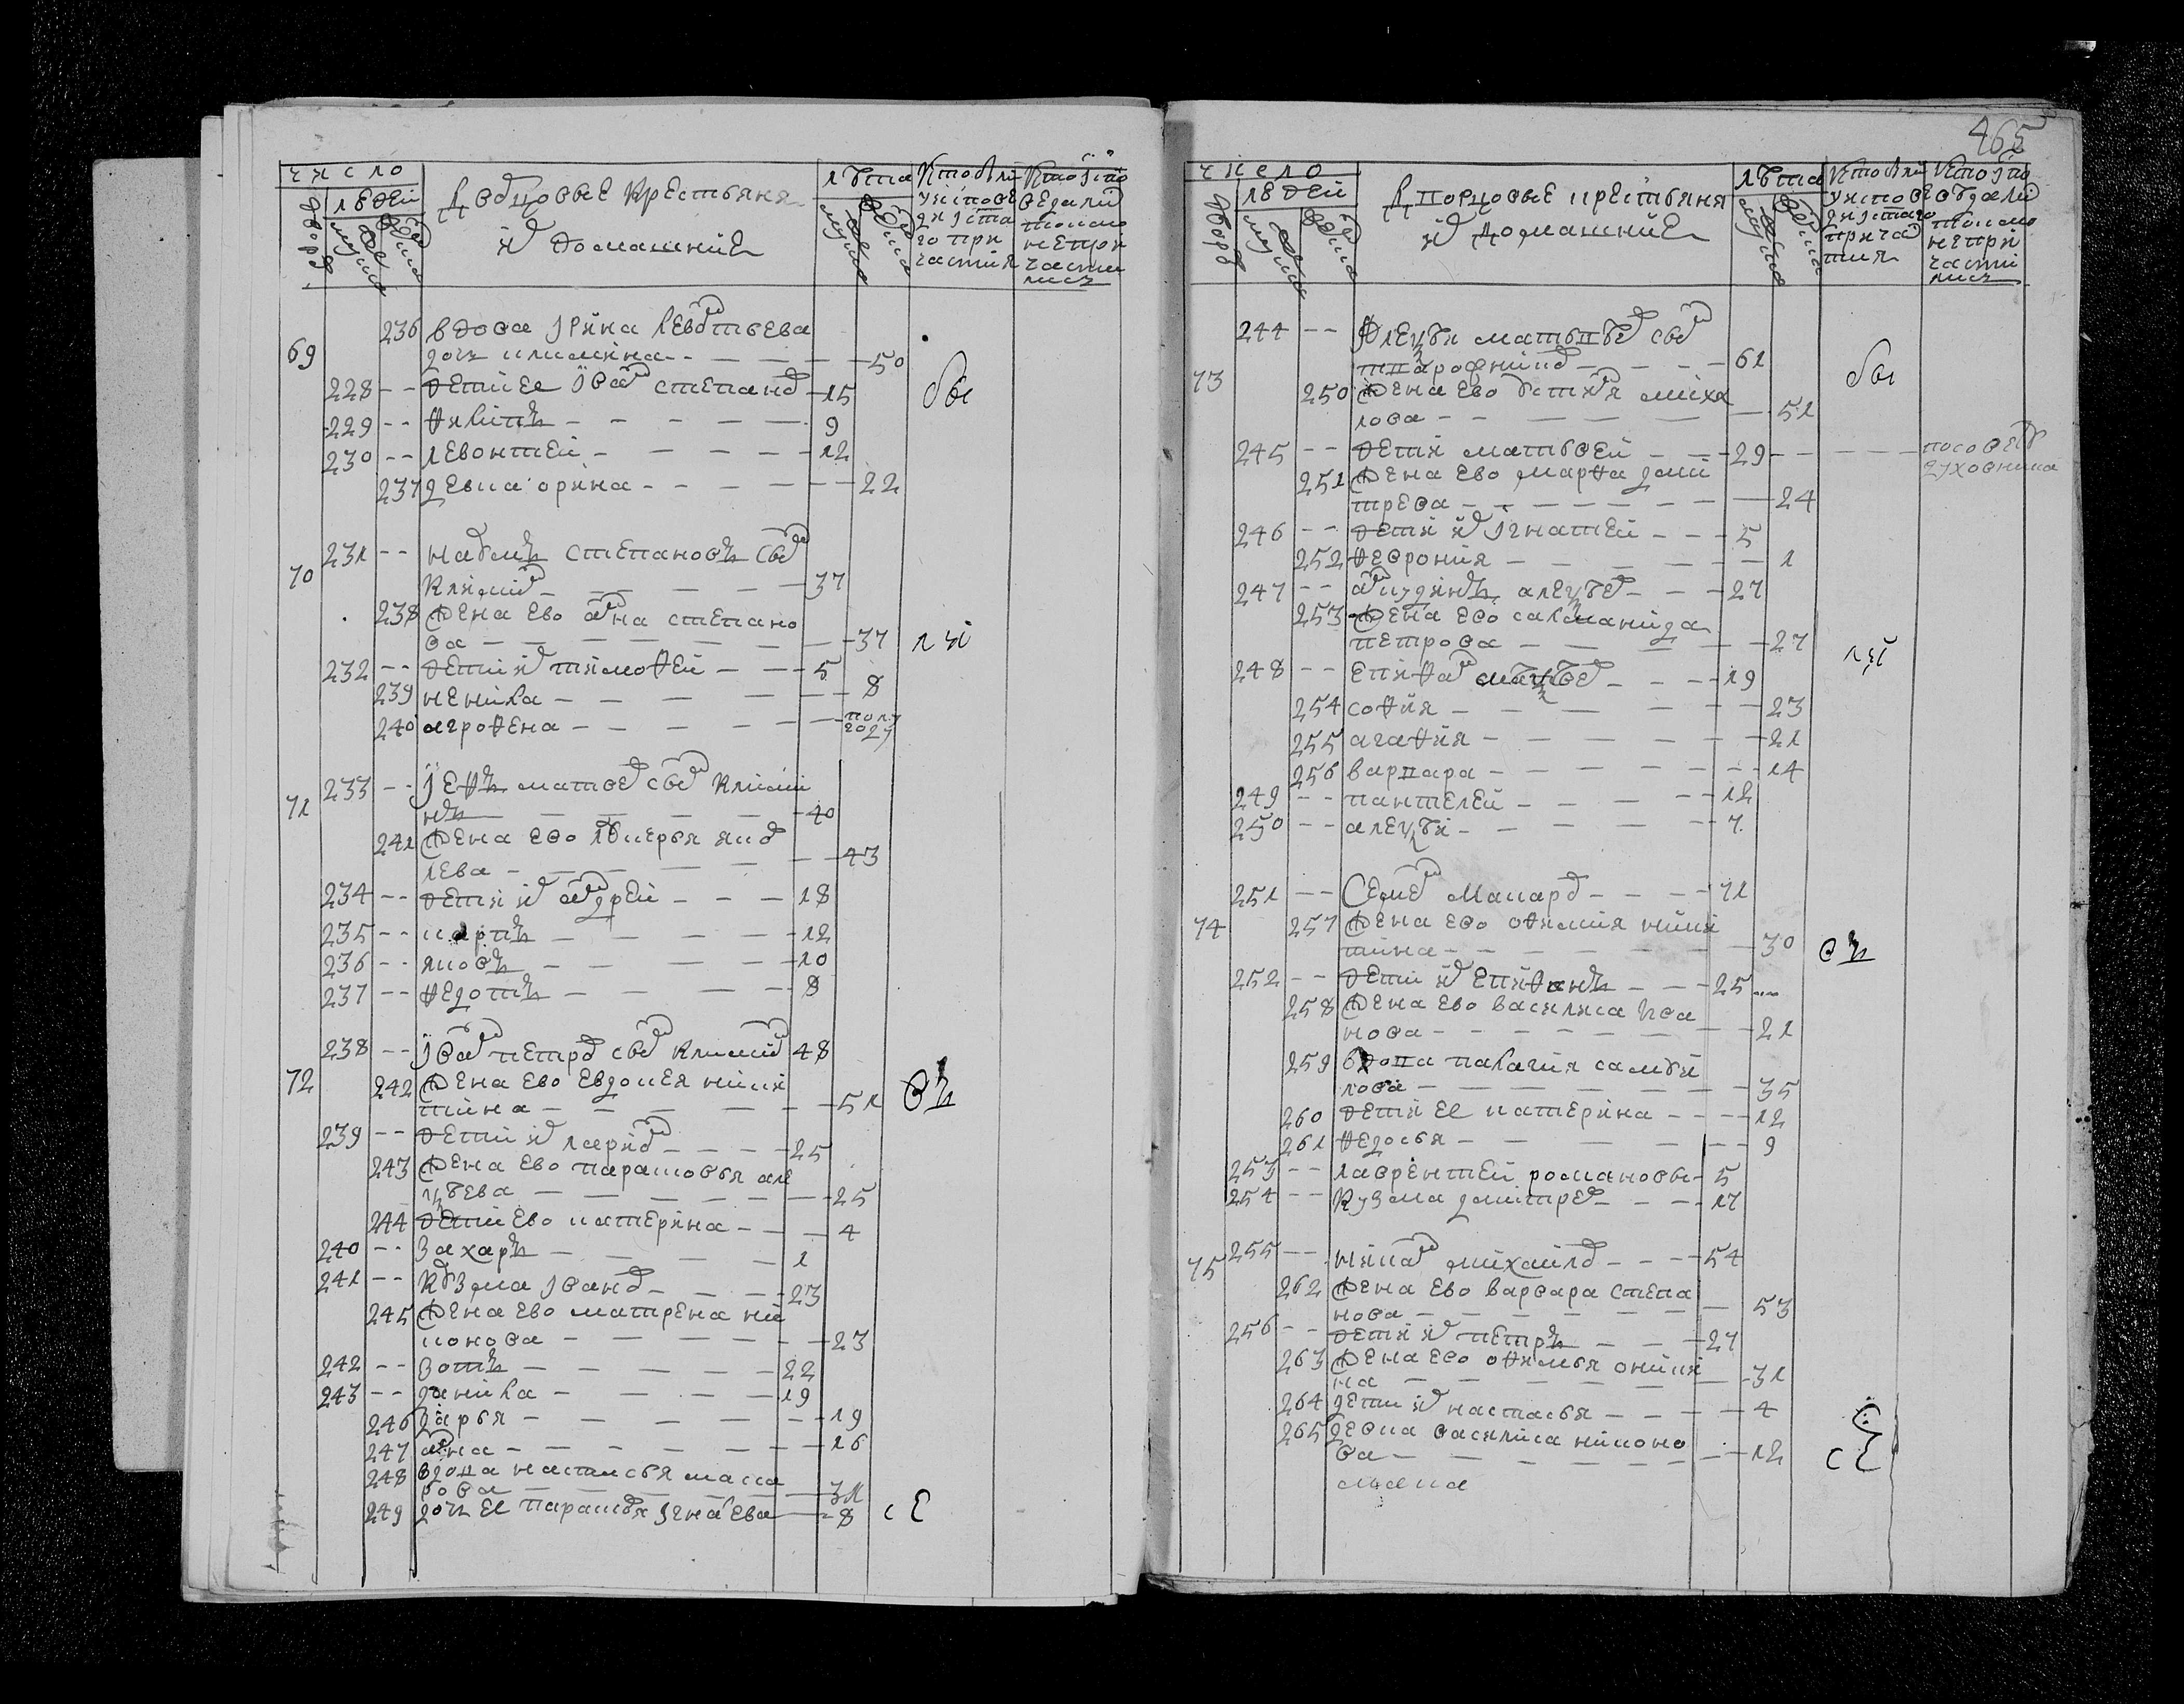 число
людей
Дворцовые крестьяня
их домашния
лета
Кто были
у исповеди
и святаго при
частия
Кто исповедали
токмо
не при
частились
69
236 вдова Ирина Левонтьева
дочь климина 50
228 -- дети ее Иван степанов 15
были
229 -- Филипъ 9
230 -- левонтей 12
237 девка орина 22
70
231 -- наумъ степановъ сын
Климин 37
238 Жена ево анна степано
ва 37
232 -- дети их тимофей 5
239 ненила 8
240 агрофена полу
году
71
233 -- матвеев сын Клими
нъ 40
241 Жена ево лукерья яко
лева 43
234 -- дети их андрей 18
235 -- карпъ 12
236 -- яковъ 10
237 -- Федотъ 8
72
238 -- Иван петров сын климин 48
242 Жена ево евдокея ники
тина 51
239 -- дети их ларион 25
243 Жена ево парасковья але
ксеева 25
244 дети ево катерина 4
240 -- Захаръ 1
241 -- Кузма Иванов 23
245 Жена ево матрена ни
конова 23
242 -- Зотъ 22
243 -- данила 19
246 дарья 19
247 анна 16
248 вдова настасья мака
рова 31
249 дочь ее парасковья Игнатева 8
се
465
число
людей
Дворцовые крестьяня
их домашния
лета
Кто были
у исповеди
и святаго
причас
тия
Кто исповедали
токмо
не при
части
лись
73
244 -- Алексей матвеев сын
трофимов 61
были
250 Жена ево устинья миха
лова 51
245 -- дети матвей 29
по совету
духовника
251 Жена ево марфа дми
трева 24
246 -- дети их Игнатей 5
252 Феврония 1
247 -- алексеев 27
253 Жена ево саламанида
петрова 27
248 -- епифан матвеев 19
254 софия 23
255 агафия 21
256 варвара 14
249 -- пантелей 12
250 -- алексей 7
74
251 -- Семен Макаров 71
257 Жена ево офимия ники
тина 30
252 -- дети их епифанъ 25
258 Жена ево василиса Ива
нова 21
259 вдова палагия самой
лова 35
260 дети ее катерина 12
261 Федосья 9
253 -- лаврентей романовы 5
254 -- Кузма дмитрев 17
75
255 -- михайлов 54
262 Жена ево варвара степа
нова 53
256 -- дети их петръ 27
263 Жена ево офимья оники
на 31
264 дети их настасья 4
265 девка василиса никоно
ва 12
се